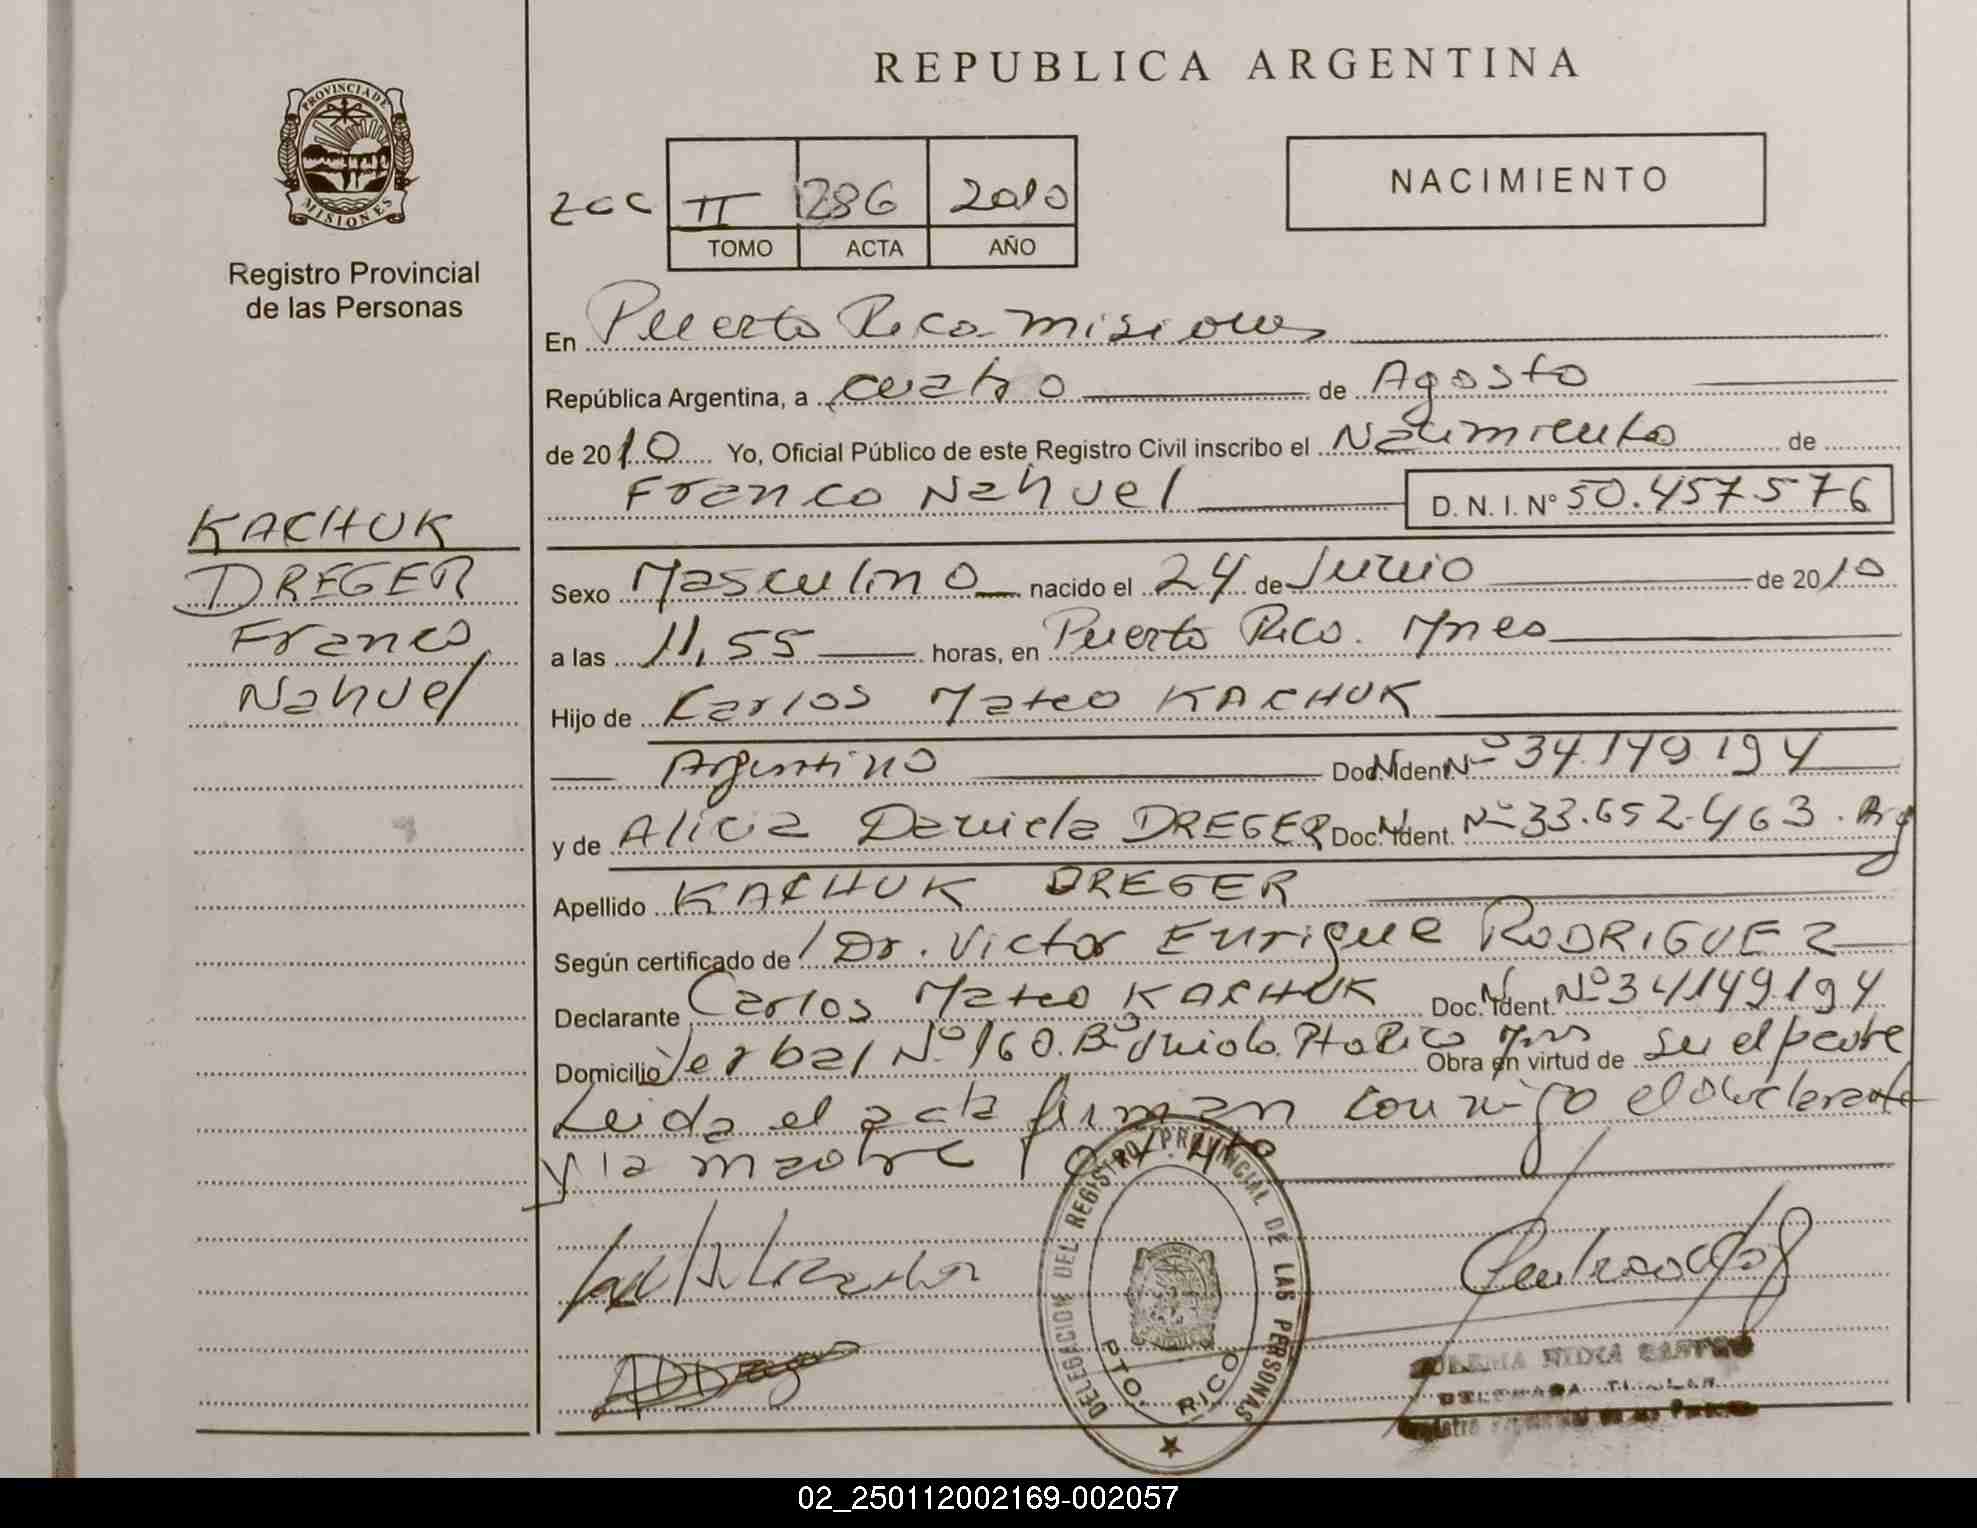 REPUBLICA ARGENTINA
PROVINCIA DE
MISIONES
Registro Provincial
de las Personas
II 286 2010
TOMO ACTA AÑO
NACIMIENTO
En Puerto Rico Misiones
República Argentina, a cuatro de Agosto
de 2010 Yo, Oficial Público de este Registro Civil inscribo el Nacimiento de
Franco Nahuel D. N. I. N° 50.457.576
KACHUK
DREGER
Franco
Nahuel
Sexo Masculino nacido el 24 de Junio de 2010
a las 11,55 horas, en Puerto Rico. Mnes
Hijo de Carlos Mateo KACHUK
Argentino Doc. Ident. Nº 34.149.194
y de Alicia Daniela DREGER Doc. Ident. Nº 33.652.463. Arg
Apellido KACHUK DREGER
Según certificado de Dr. Victor Enrique RODRIGUEZ
Declarante Carlos Mateo KACHUK Doc. Ident. Nº 34149194
Domicilio Yerbal Nº 160. Bº Pto Rico Obra en virtud de ser el padre
Leida el acta firman conmigo el declarante
y la madre
DELEGACION DEL REGISTRO PROVINCIAL DE LAS PERSONAS
PTO. RICO
02_250112002169-002057